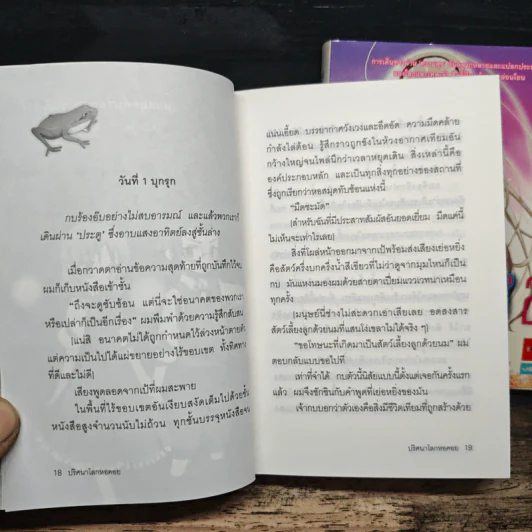 วันที่ 1 บุกรุก
กบร้องอ๊บอย่างไม่สบอารมณ์ และแล้วพวกเราก็
เดินผ่าน 'ประตู' ซึ่งอาบแสงอาทิตย์ลงสู่ชั้นล่าง
เมื่อกวาดตาอ่านข้อความสุดท้ายที่ถูกบันทึกไว้จบ
ผมก็เก็บหนังสือเข้าชั้น
"ถึงจะดูซับซ้อน แต่นี่จะใช่อนาคตของพวกเรา
หรือเปล่าก็เป็นอีกเรื่อง" ผมพึมพำด้วยความรู้สึกสับสน
[แน่สิ อนาคตไม่ได้ถูกกำหนดไว้ล่วงหน้าตายตัว
แต่ความเป็นไปได้แผ่ขยายอย่างไร้ขอบเขต ทั้งทิศทาง
ที่ดีและไม่ดี]
เสียงพูดลอดจากเป้ที่ผมสะพาย
ในพื้นที่ไร้ขอบเขตอันเงียบสงัดเต็มไปด้วยชั้น
หนังสือสูงจำนวนนับไม่ถ้วน ทุกชั้นบรรจุหนังสือจน
18 ปริศนาโลกหอคอย
แน่นเอี้ยด บรรยากาศวังเวงและอึดอัด ความมืดคล้าย
กำลังไล่ต้อน รู้สึกราวถูกขังในห้วงอากาศเทียมอัน
กว้างใหญ่จนไพล่นึกว่าเวลาหยุดเดิน สิ่งเหล่านี้คือ
องค์ประกอบหลัก และเป็นทุกสิ่งทุกอย่างของสถานที่
ซึ่งถูกเรียกว่าหอสมุดทับซ้อนแห่งนี้
"มืดชะมัด"
[สำหรับฉันที่มีประสาทสัมผัสอันยอดเยี่ยม มืดแค่นี้
ไม่เห็นจะเท่าไรเลย]
สิ่งที่โผล่หน้าออกมาจากเป้พร้อมส่งเสียงเย่อหยิ่ง
คือสัตว์ครึ่งบกครึ่งน้ำสีเขียวที่ไม่ว่าดูจากมุมไหนก็เป็น
กบ มันแหงนมองผมด้วยสายตาเปี่ยมแววเวทนาเหมือน
ทุกครั้ง
[มนุษย์นี่ช่างไม่สะดวกเอาเสียเลย อดสงสาร
สัตว์เลี้ยงลูกด้วยนมที่แสนโง่เขลาไม่ได้จริง ๆ]
"ขอโทษนะที่เกิดมาเป็นสัตว์เลี้ยงลูกด้วยนม" ผม
ตอบกลับแบบขอไปที
เท่าที่จำได้ กบตัวนี้นิสัยแบบนี้ตั้งแต่เจอกันครั้งแรก
แล้ว ผมจึงชักชินกับคำพูดที่เย่อหยิ่งของมัน
เจ้ากบบอกว่าตัวเองคือสิ่งมีชีวิตเทียมที่ถูกสร้างด้วย
ปริศนาโลกหอคอย 19